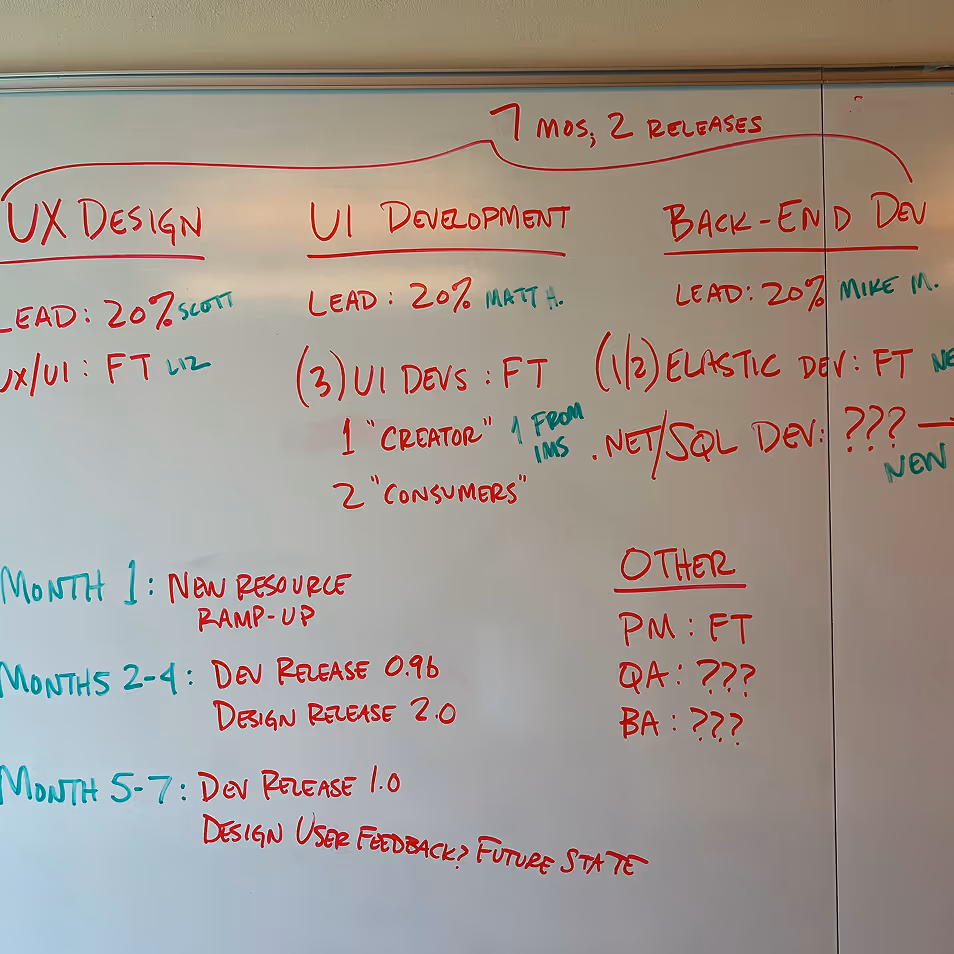 7 MOS, 2 RELEASES
UX DESIGN
LEAD: 20% SCOTT
UX/UI: FT LIZ
UI DEVELOPMENT
LEAD: 20% MATT H.
(3) UI DEVS: FT
1 "CREATOR" 1 FROM IMS
2 "CONSUMERS"
BACK-END DEV
LEAD: 20% MIKE M.
(1/2) ELASTIC DEV: FT
.NET/SQL DEV: ??? →
NEW
MONTH 1: NEW RESOURCE
RAMP-UP
MONTHS 2-4: DEV RELEASE 0.9b
DESIGN RELEASE 2.0
MONTH 5-7: DEV RELEASE 1.0
DESIGN USER FEEDBACK? FUTURE STATE
OTHER
PM: FT
QA: ???
BA: ???